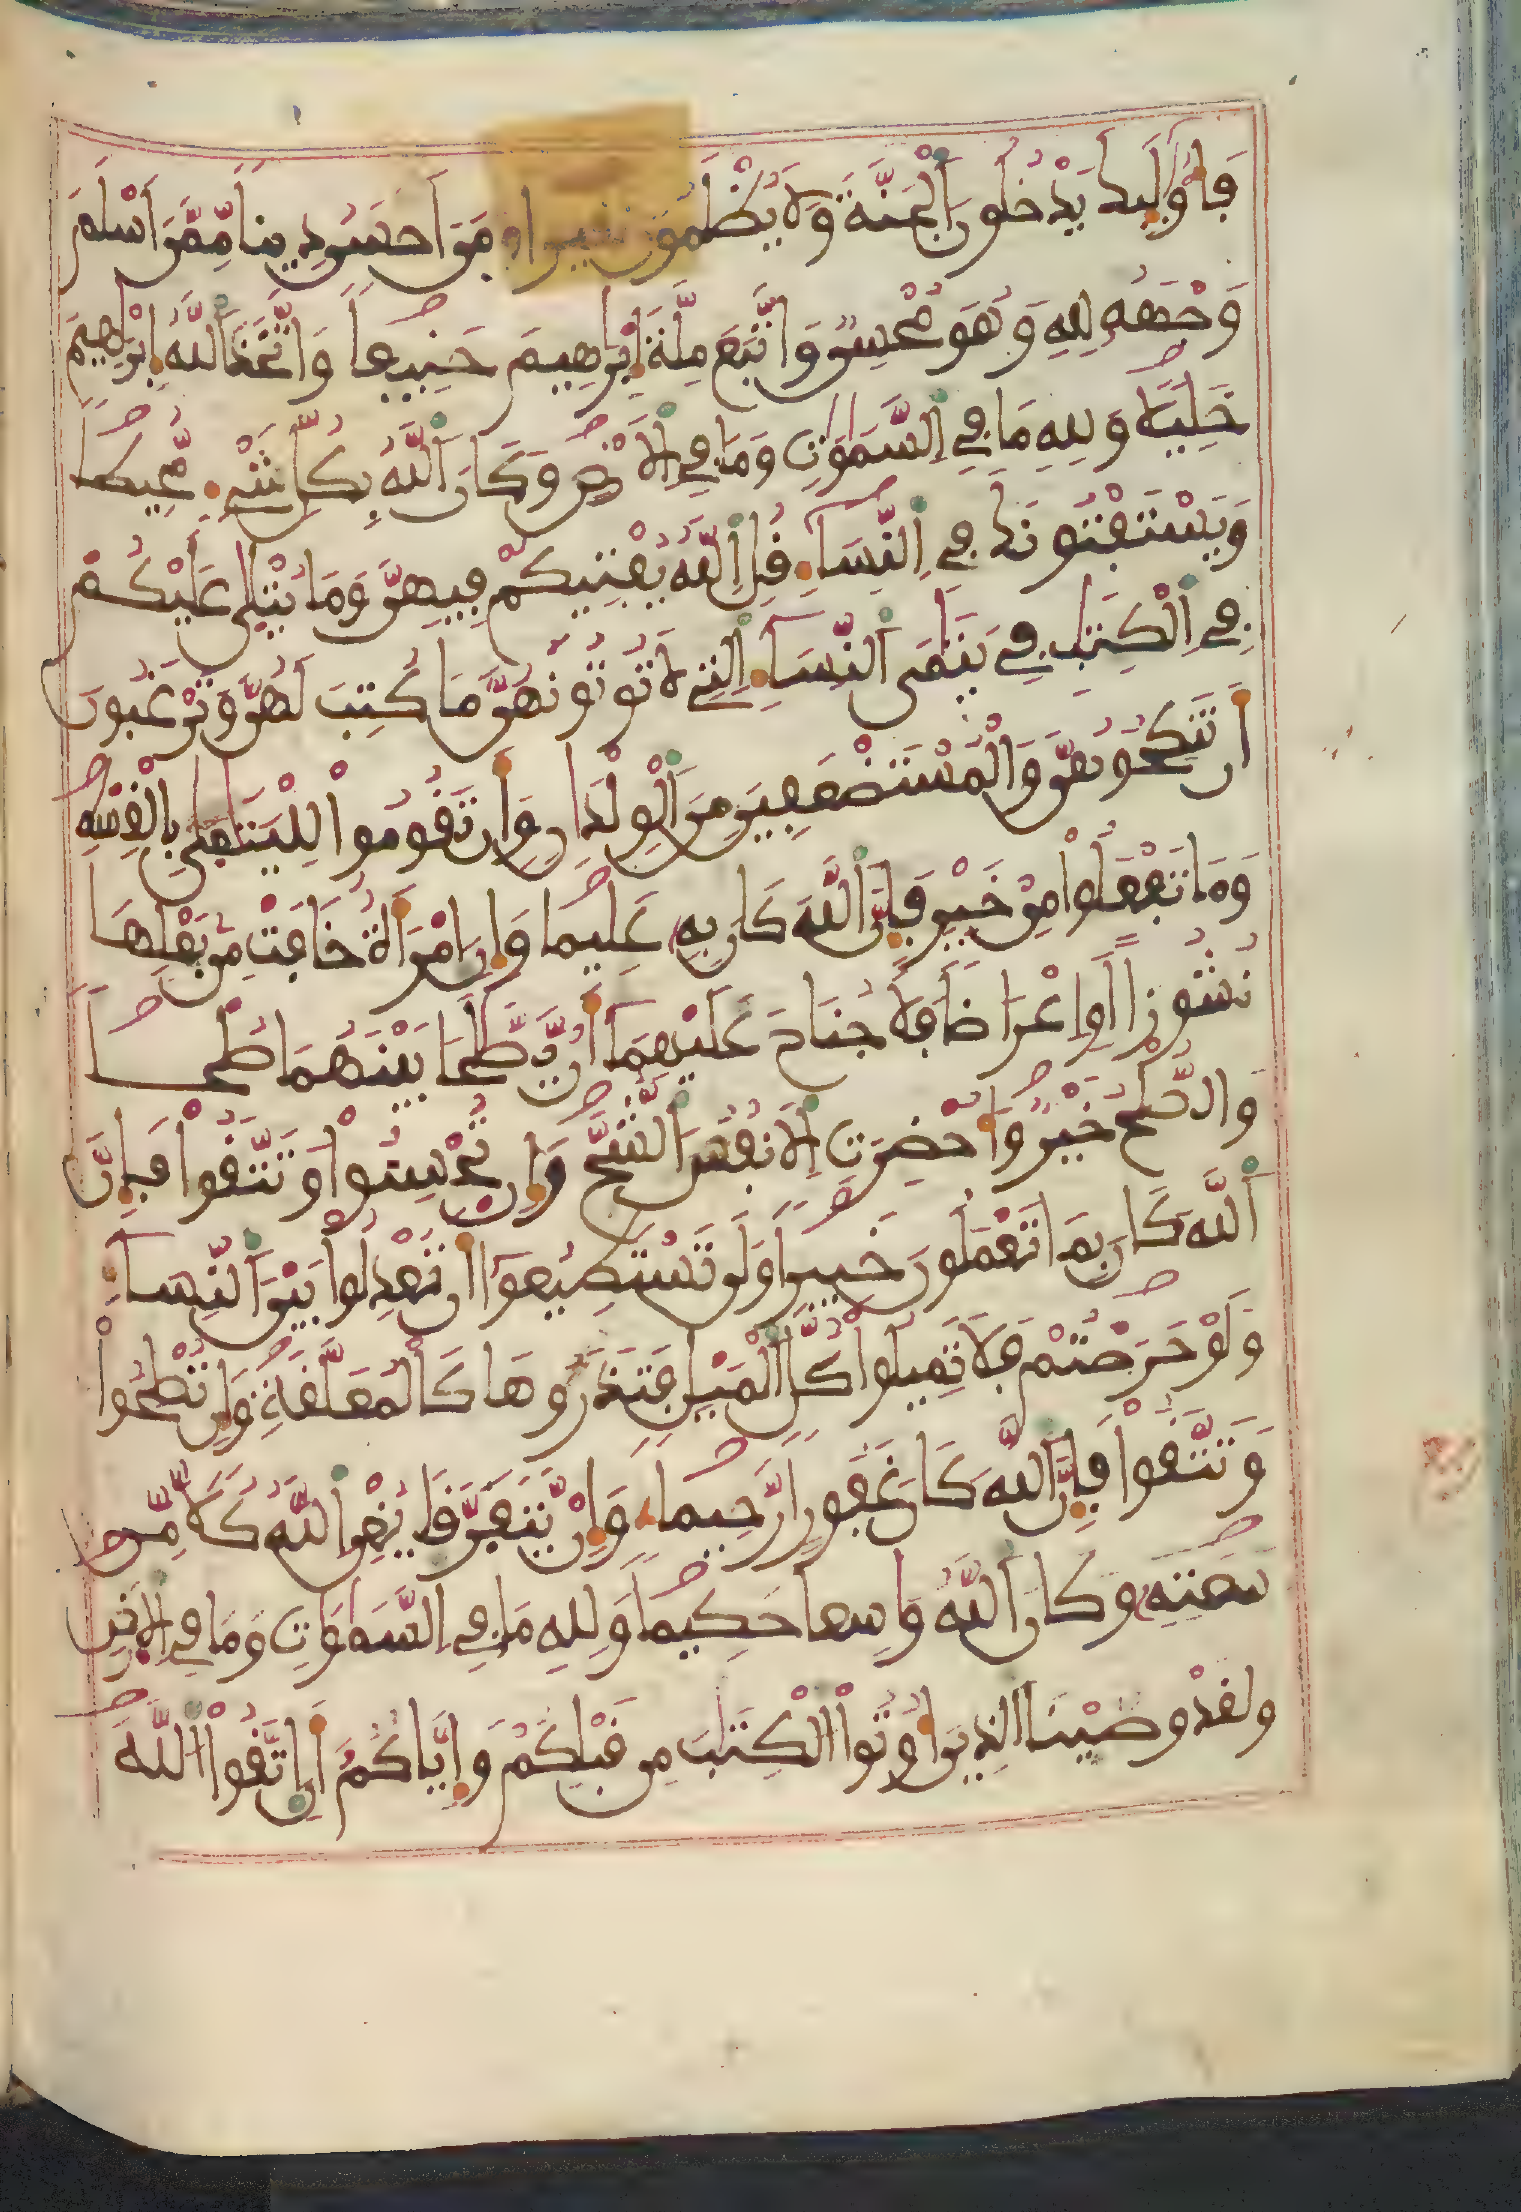 فَأُوْلَٰئِكَ يَدْخُلُونَ اَ۬لْجَنَّةَ وَلَا يُظْلَمُونَ نَقِيراٗ وَمَنَ اَحْسَنُ دِيناٗ مِّمَّنَ اَسْلَمَ
وَجْهَهُۥ لِلهِ وَهُوَ مُحْسِنٞ وَاتَّبَعَ مِلَّةَ إِبْرَٰهِيمَ حَنِيفاٗ وَاتَّخَذَ اَ۬للَّهُ إِبْرَٰهِيمَ
خَلِيلاٗ وَلِلهِ مَا فِے اِ۬لسَّمَٰوَٰتِ وَمَا فِے اِ۬لَارْضِ وَكَانَ اَ۬للَّهُ بِكُلِّ شَےْءٖ مُّحِيطاٗ
وَيَسْتَفْتُونَكَ فِے اِ۬لنِّسَآءِ قُلِ اِ۬للَّهُ يُفْتِيكُمْ فِيهِنَّ وَمَا يُتْلَىٰ عَلَيْكُمْ
فِے اِ۬لْكِتَٰبِ فِے يَتَٰمَى اَ۬لنِّسَآءِ اِ۬لتِے لَا تُوتُونَهُنَّ مَا كُتِبَ لَهُنَّ وَتَرْغَبُونَ
أَن تَنكِحُوهُنَّ وَالْمُسْتَضْعَفِينَ مِنَ اَ۬لْوِلْدَٰنِ وَأَن تَقُومُواْ لِلْيَتَٰمَىٰ بِالْقِسْطِ
وَمَا تَفْعَلُواْ مِنْ خَيْرٖ فَإِنَّ اَ۬للَّهَ كَانَ بِهِۦ عَلِيماٗ وَإِنِ اِمْرَأَةٌ خَافَتْ مِنۢ بَعْلِهَا
نُشُوزاً اَوِ اِعْرَاضاٗ فَلَا جُنَاحَ عَلَيْهِمَآ أَنْ يَّصَّٰلَحَا بَيْنَهُمَا صُلْحاٗ
وَالصُّلْحُ خَيْرٞ وَأُحْضِرَتِ اِ۬لَانفُسُ اُ۬لشُّحَّ وَإِن تُحْسِنُواْ وَتَتَّقُواْ فَإِنَّ
اَ۬للَّهَ كَانَ بِمَا تَعْمَلُونَ خَبِيراٗ وَلَن تَسْتَطِيعُوٓاْ أَن تَعْدِلُواْ بَيْنَ اَ۬لنِّسَآءِ
وَلَوْ حَرَصْتُمْ فَلَا تَمِيلُواْ كُلَّ اَ۬لْمَيْلِ فَتَذَرُوهَا كَالْمُعَلَّقَةِ وَإِن تُصْلِحُواْ
وَتَتَّقُواْ فَإِنَّ اَ۬للَّهَ كَانَ غَفُوراٗ رَّحِيماٗ وَإِنْ يَّتَفَرَّقَا يُغْنِ اِ۬للَّهُ كُلّاٗ مِّن
سَعَتِهِۦ وَكَانَ اَ۬للَّهُ وَٰسِعاً حَكِيماٗ وَلِلهِ مَا فِے اِ۬لسَّمَٰوَٰتِ وَمَا فِے اِ۬لَارْضِ
وَلَقَدْ وَصَّيْنَا اَ۬لذِينَ أُوتُواْ اُ۬لْكِتَٰبَ مِن قَبْلِكُمْ وَإِيَّاكُمُۥٓ أَنِ اِ۪تَّقُواْ اُ۬للَّهَ